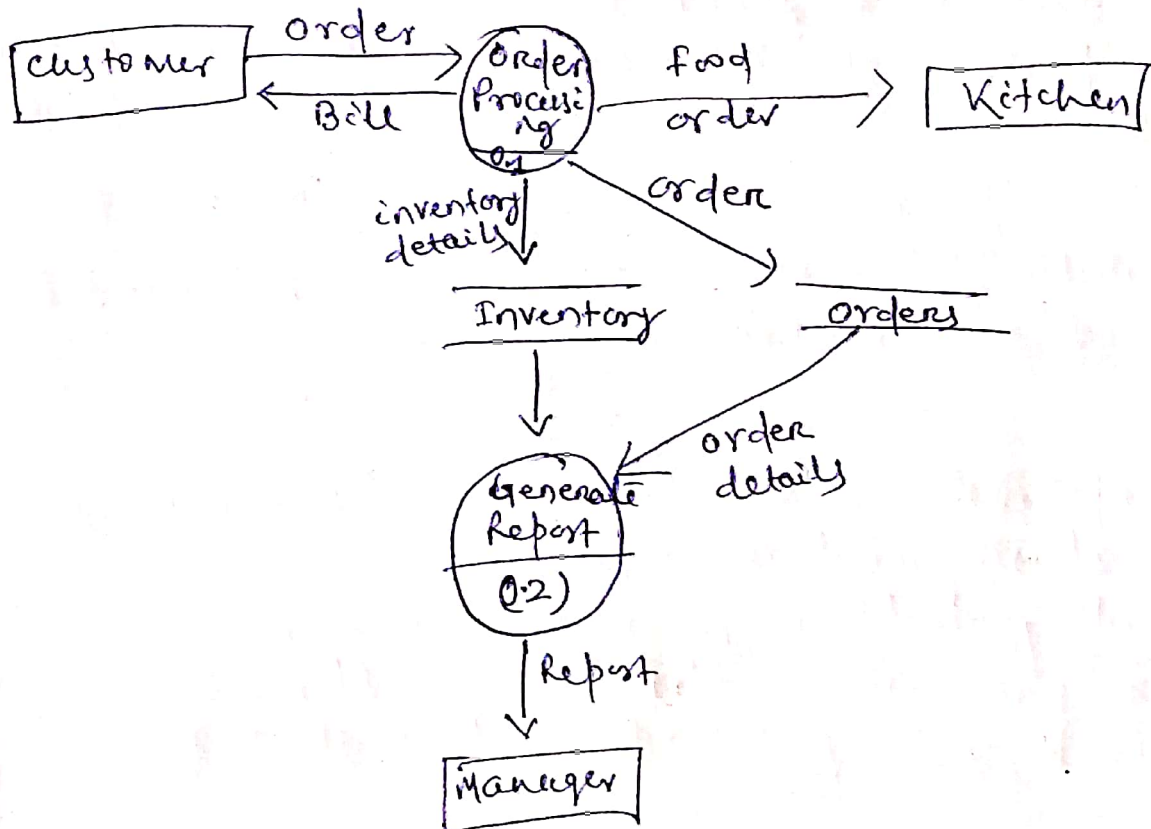 Order
Customer
Bill
Order
Processi
ng
0.1
food
order
Kitchen
inventory
details
order
Inventory
Orders
order
details
Generate
Report
(0.2)
Report
Manager